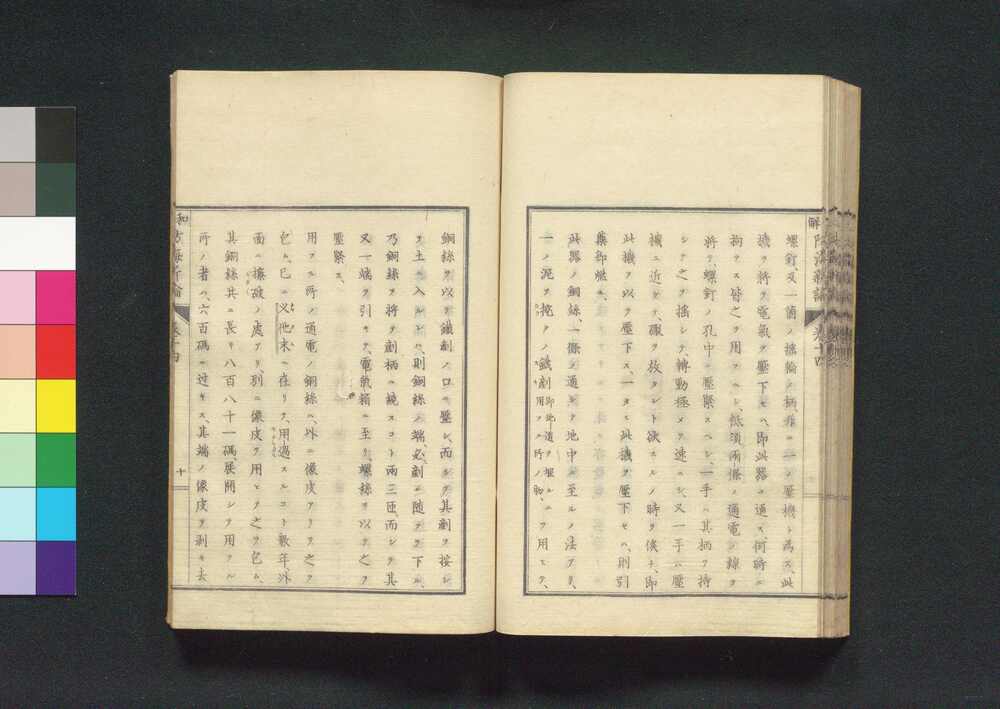 螺釘、又一箇ノ搖輪ノ柄
機ヲ將テ電氣ヲ壓下セハ、即此器ニ通ス、何時ニ
拘ラス皆之ヲ用フヘシ、低須兩條ノ通電ノ線ヲ
將テ、螺釘ノ孔中ニ壓緊スヘシ、一手ハ其柄ヲ持
シテ之ヲ搖シテ、轉動極メテ速ニシ、又一手ハ壓
機ニ近クシテ、礮ヲ放タント欲スルノ時ヲ俟チ、即
此機ヲ以テ壓下ス、一タヒ此機ヲ壓下セハ、則引
藥卽燃
此器ノ銅絲、一條ヲ通シテ地中ニ至ルノ法アリ、
一ノ泥ヲ挖クノ鐵劃即地道ヲ堀ルニ用フル所ノ物ヲ用ヒテ、
銅絲ヲ以テ鐵劃ノ口ニ壓シ、而シテ其劃ヲ按シ
テ土ニ入ルレハ、則銅絲ノ端、必劃ニ隨テ下ル、
乃銅絲ヲ將テ劃柄ニ繞スコト兩三匝、而シテ其
又一端ヲ引キテ、電氣箱ニ至リ、螺絲ヲ以テ之ヲ
壓緊ス、
用フル所ノ通電ノ銅絲ハ、外ニ像皮アリテ之ヲ
包ム、已ニ義他末ニ在リテ、用過スルコト數年、外
面ニ擦破ノ處アリ、別ニ像皮ヲ用ヒテ之ヲ包ム、
其銅絲共ニ長サ八百八十一碼、展開シテ用フル
所ノ者ハ、六百碼ニ過キス、其端ノ像皮ヲ剥キ去
十